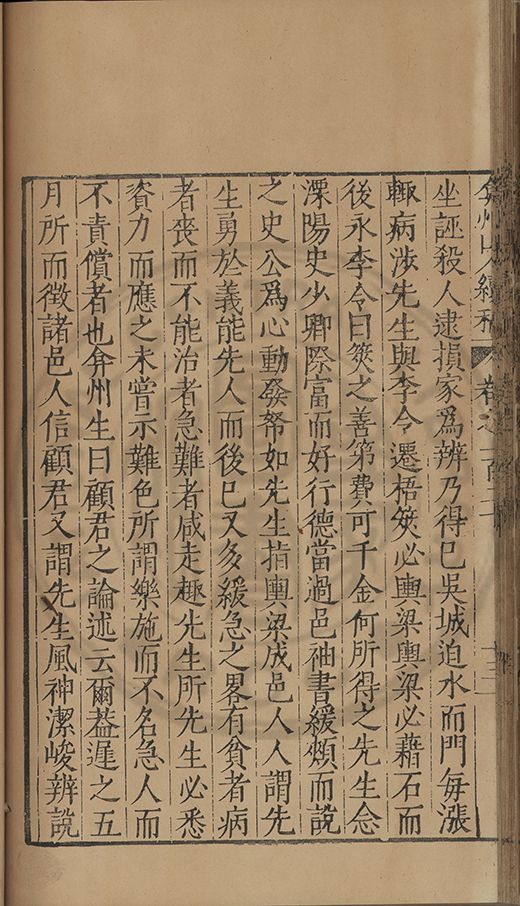 弇州山續稿 卷之一百二 十三
坐誣殺人逮損家爲辨乃得已吳城迫水而門每漲
輒病涉先生與李令遷梧筴必輿梁輿梁必藉石而
後永李令曰筴之善第費可千金何所得之先生念
溧陽史少卿際富而好行德當過邑袖書緩頰而說
之史公爲心動發帑如先生指輿梁成邑人人謂先
生勇於義能先人而後已又多緩急之畧有貧者病
者喪而不能治者急難者咸走趣先生所先生必悉
資力而應之未嘗示難色所謂樂施而不名急人而
不責償者也弇州生曰顧君之論述云爾葢遲之五
月所而徵諸邑人信顧君又謂先生風神潔峻辨說